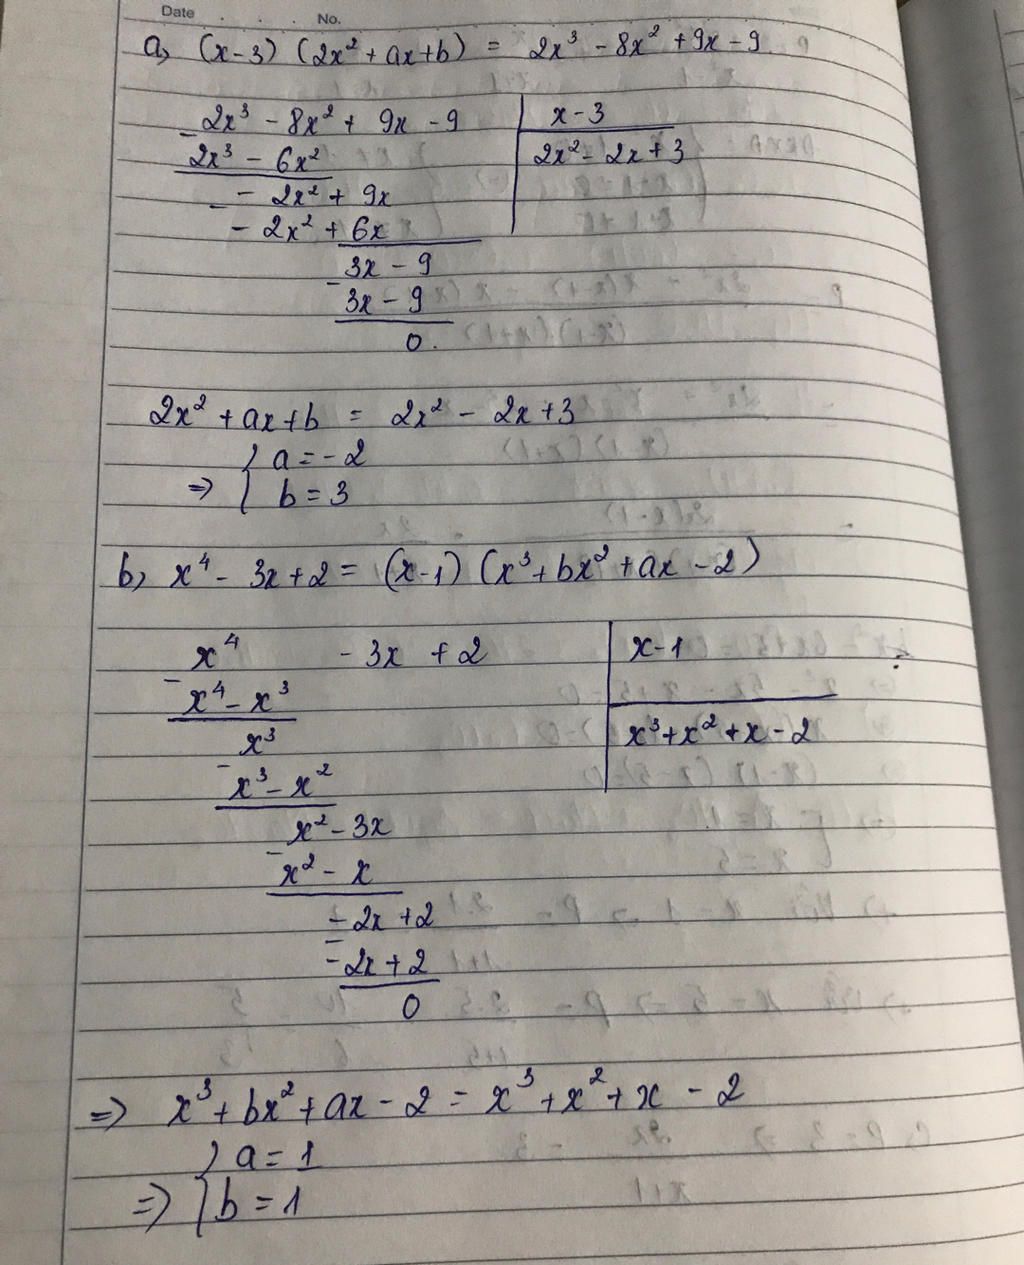 Date . . . No.
a, (x-3) (2x² + ax+b) = 2x³ - 8x² + 9x - 9
- 2x³ - 8x² + 9x - 9 | x - 3
2x³ - 6x² | 2x² - 2x + 3
- - 2x² + 9x
- 2x² + 6x
- 3x - 9
3x - 9
0.
2x² + ax + b = 2x² - 2x + 3
=> { a = -2
b = 3
b, x⁴ - 3x + 2 = (x-1) (x³ + bx² + ax - 2)
- x⁴ - 3x + 2 | x-1
x⁴ - x³ | x³ + x² + x - 2
- x³
x³ - x²
- x² - 3x
x² - x
- - 2x + 2
- 2x + 2
0
=> x³ + bx² + ax - 2 = x³ + x² + x - 2
=> { a = 1
b = 1